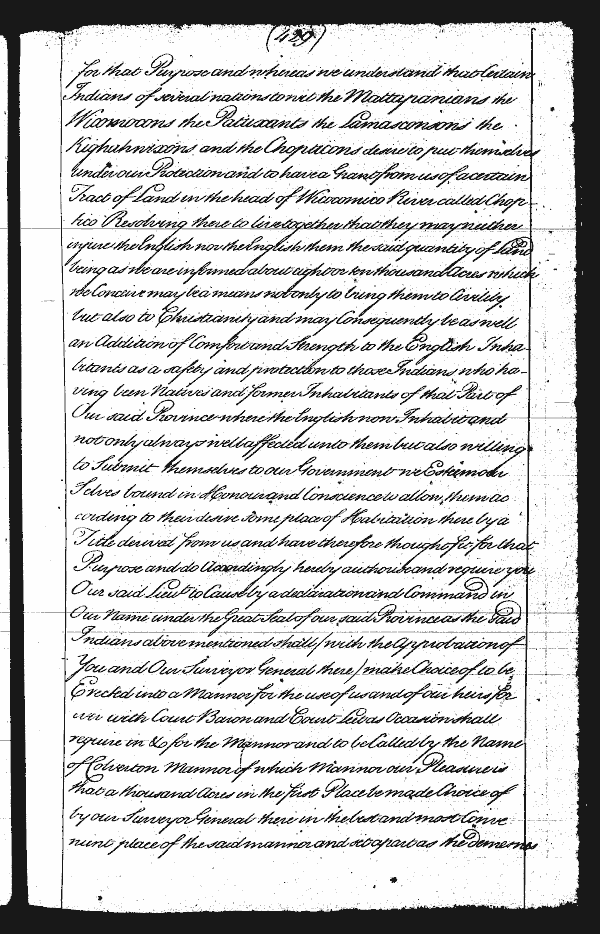 (429)
for that Purpose and whereas we understand that Certain
Indians of several nations to wit the Mattapanians the
Wicomocons the Patuxants the Lamasconsons the
Kighuhnixons and the Chopticons desire to put themselves
under our Protection and to have a Grant from us of a certain
Tract of Land in the head of Wicomico River called Chop-
tico Resolving there to live together that they may neither
injure the English nor the English them the said quantity of Land
being as we are informed about eight or ten thousand Acres which
we Conceive may be a means not only to bring them to Civility
but also to Christianity and may Consequently be as well
an Addition of Comfort and Strength to the English Inha-
bitants as a safety and protection to those Indians who ha-
ving been Natives and former Inhabitants of that Part of
Our said Province where the English now Inhabit and
not only always well affected unto them but also willing
to Submit themselves to our Government we Esteem our
Selves bound in Honour and Conscience to allow them ac
cording to their desire some place of Habitation there by a
Title derived from us and have therefore thought fit for that
Purpose and do Accordingly hereby authorise and require you
Our said Lieut to Cause by a declaration and Command in
Our Name under the Great Seal of our said Province as the said
Indians above mentioned shall (with the Approbation of
You and Our Surveyor General there) make Choice of to be
Erected into a Mannor for the use of us and of our heirs for
ever with Court Baron and Court Leet as Occasion shall
require in & for the Mannor and to be Called by the Name
of Calverton Mannor of which Mannor our Pleasure is
that a thousand Acres in the first Place be made Choice of
by our Surveyor General there in the best and most Conve
nient place of the said mannor and set apart as the demesnes